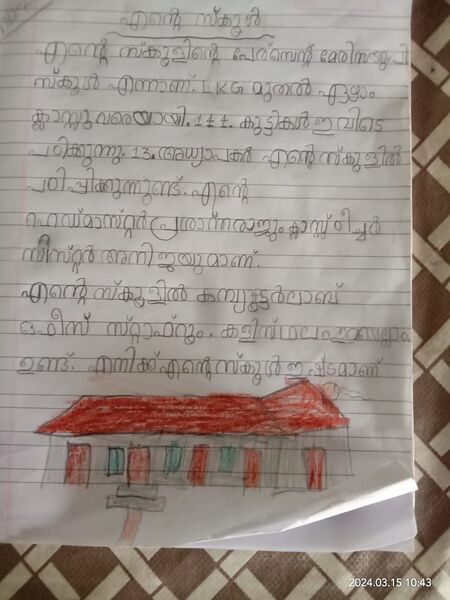 എന്റെ സ്കൂൾ
എന്റെ സ്കൂളിന്റെ പേര് സെന്റ് മേരിസ് യു.പി
സ്കൂൾ എന്നാണ്. LKG മുതൽ ഏഴാം
ക്ലാസ്സുവരെയായി. 111. കുട്ടികൾ ഇവിടെ
പഠിക്കുന്നു. 13. അധ്യാപകർ എന്റെ സ്കൂളിൽ
പഠിപ്പിക്കുന്നുണ്ട്. എന്റെ
ഹെഡ്മാസ്റ്റർ പ്രശാന്തരാജും ക്ലാസ്സ് ടീച്ചർ
സിസ്റ്റർ അനിജയുമാണ്.
എന്റെ സ്കൂളിൽ കമ്പ്യൂട്ടർലാബ്
ഓഫീസ് സ്റ്റാഫ്റൂം. കളിസ്ഥലം ഇവയെല്ലാം
ഉണ്ട്. എനിക്ക് എന്റെ സ്കൂൾ ഇഷ്ടമാണ്
2024.03.15 10:43